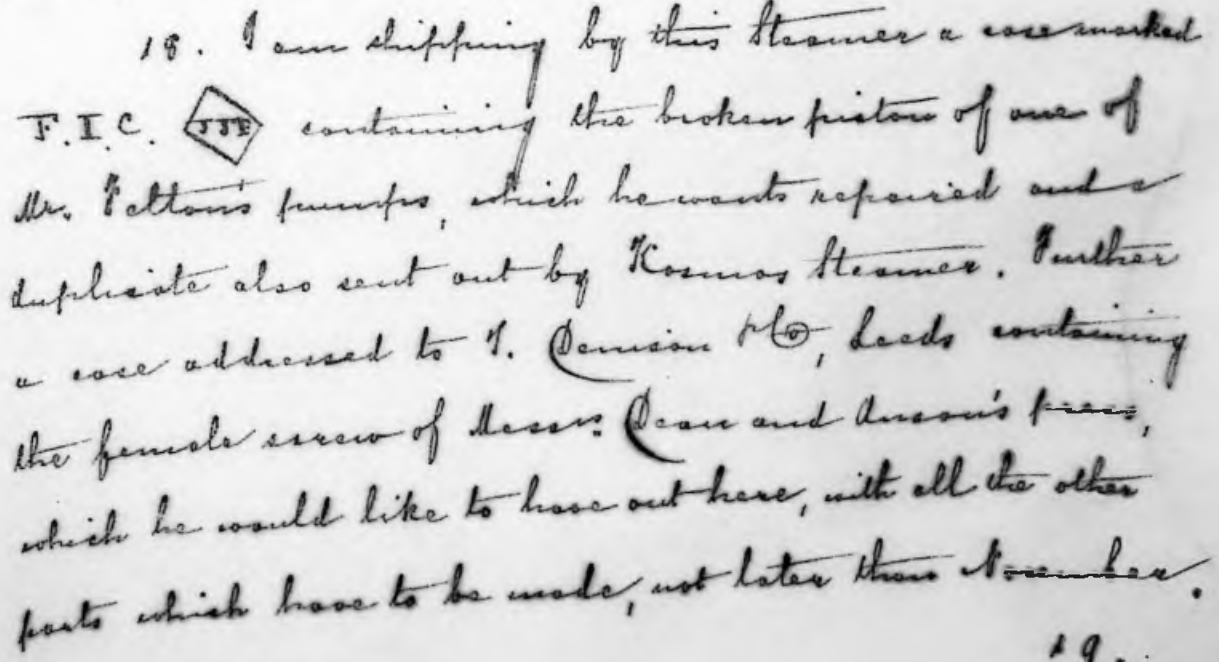 18. I am shipping by this Steamer a case marked
F.I.C. containing the broken piston of one of
Mr. Felton's pumps, which he wants repaired and a
duplicate also sent out by Kosmos Steamer. Further
a case addressed to T. Denison & Co, Leeds containing
the female screw of Messrs. Dean and Anson's press,
which he would like to have out here, with all the other
parts which have to be made, not later than November.
19.